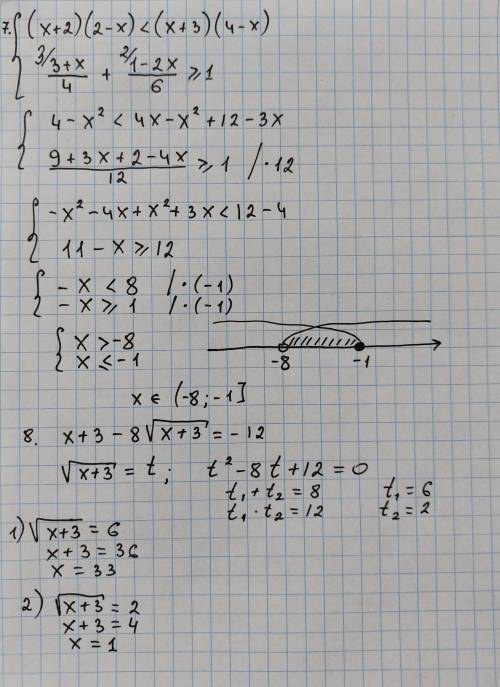 7. { (x+2)(2-x) < (x+3)(4-x)
3/ 3+x/4 + 2/ 1-2x/6 ≥ 1
{ 4-x² < 4x-x²+12-3x
9+3x+2-4x/12 ≥ 1 /·12
{ -x²-4x+x²+3x < 12-4
11-x ≥ 12
{ -x < 8 /·(-1)
-x ≥ 1 /·(-1)
{ x > -8
x ≤ -1
-8 -1
x ∈ (-8; -1]
8. x+3-8√(x+3) = -12
√(x+3) = t; t²-8t+12=0
t₁+t₂=8 t₁=6
t₁·t₂=12 t₂=2
1) √(x+3) = 6
x+3=36
x=33
2) √(x+3) = 2
x+3=4
x=1